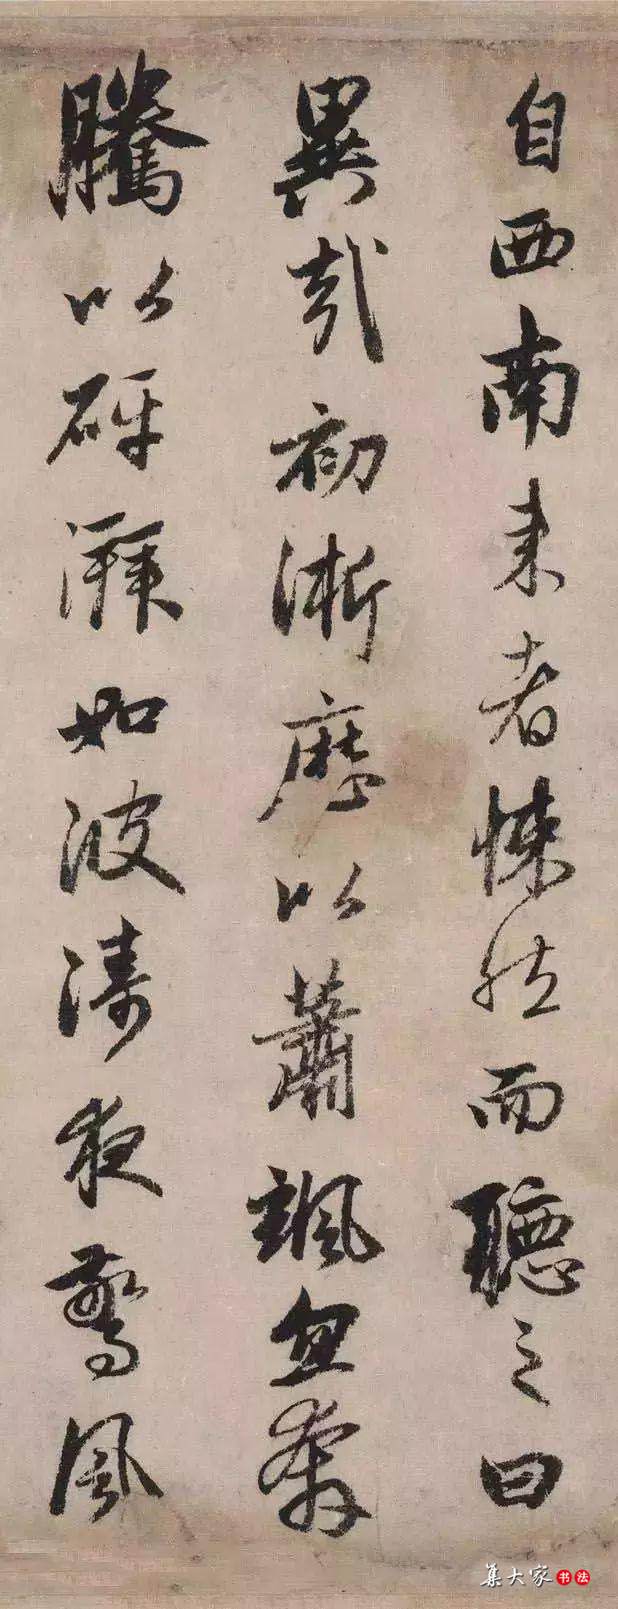 自西南來者悚然而聽之曰
異哉初淅歷以蕭颯忽奔
騰以砰湃如波濤夜驚風
集大家书法